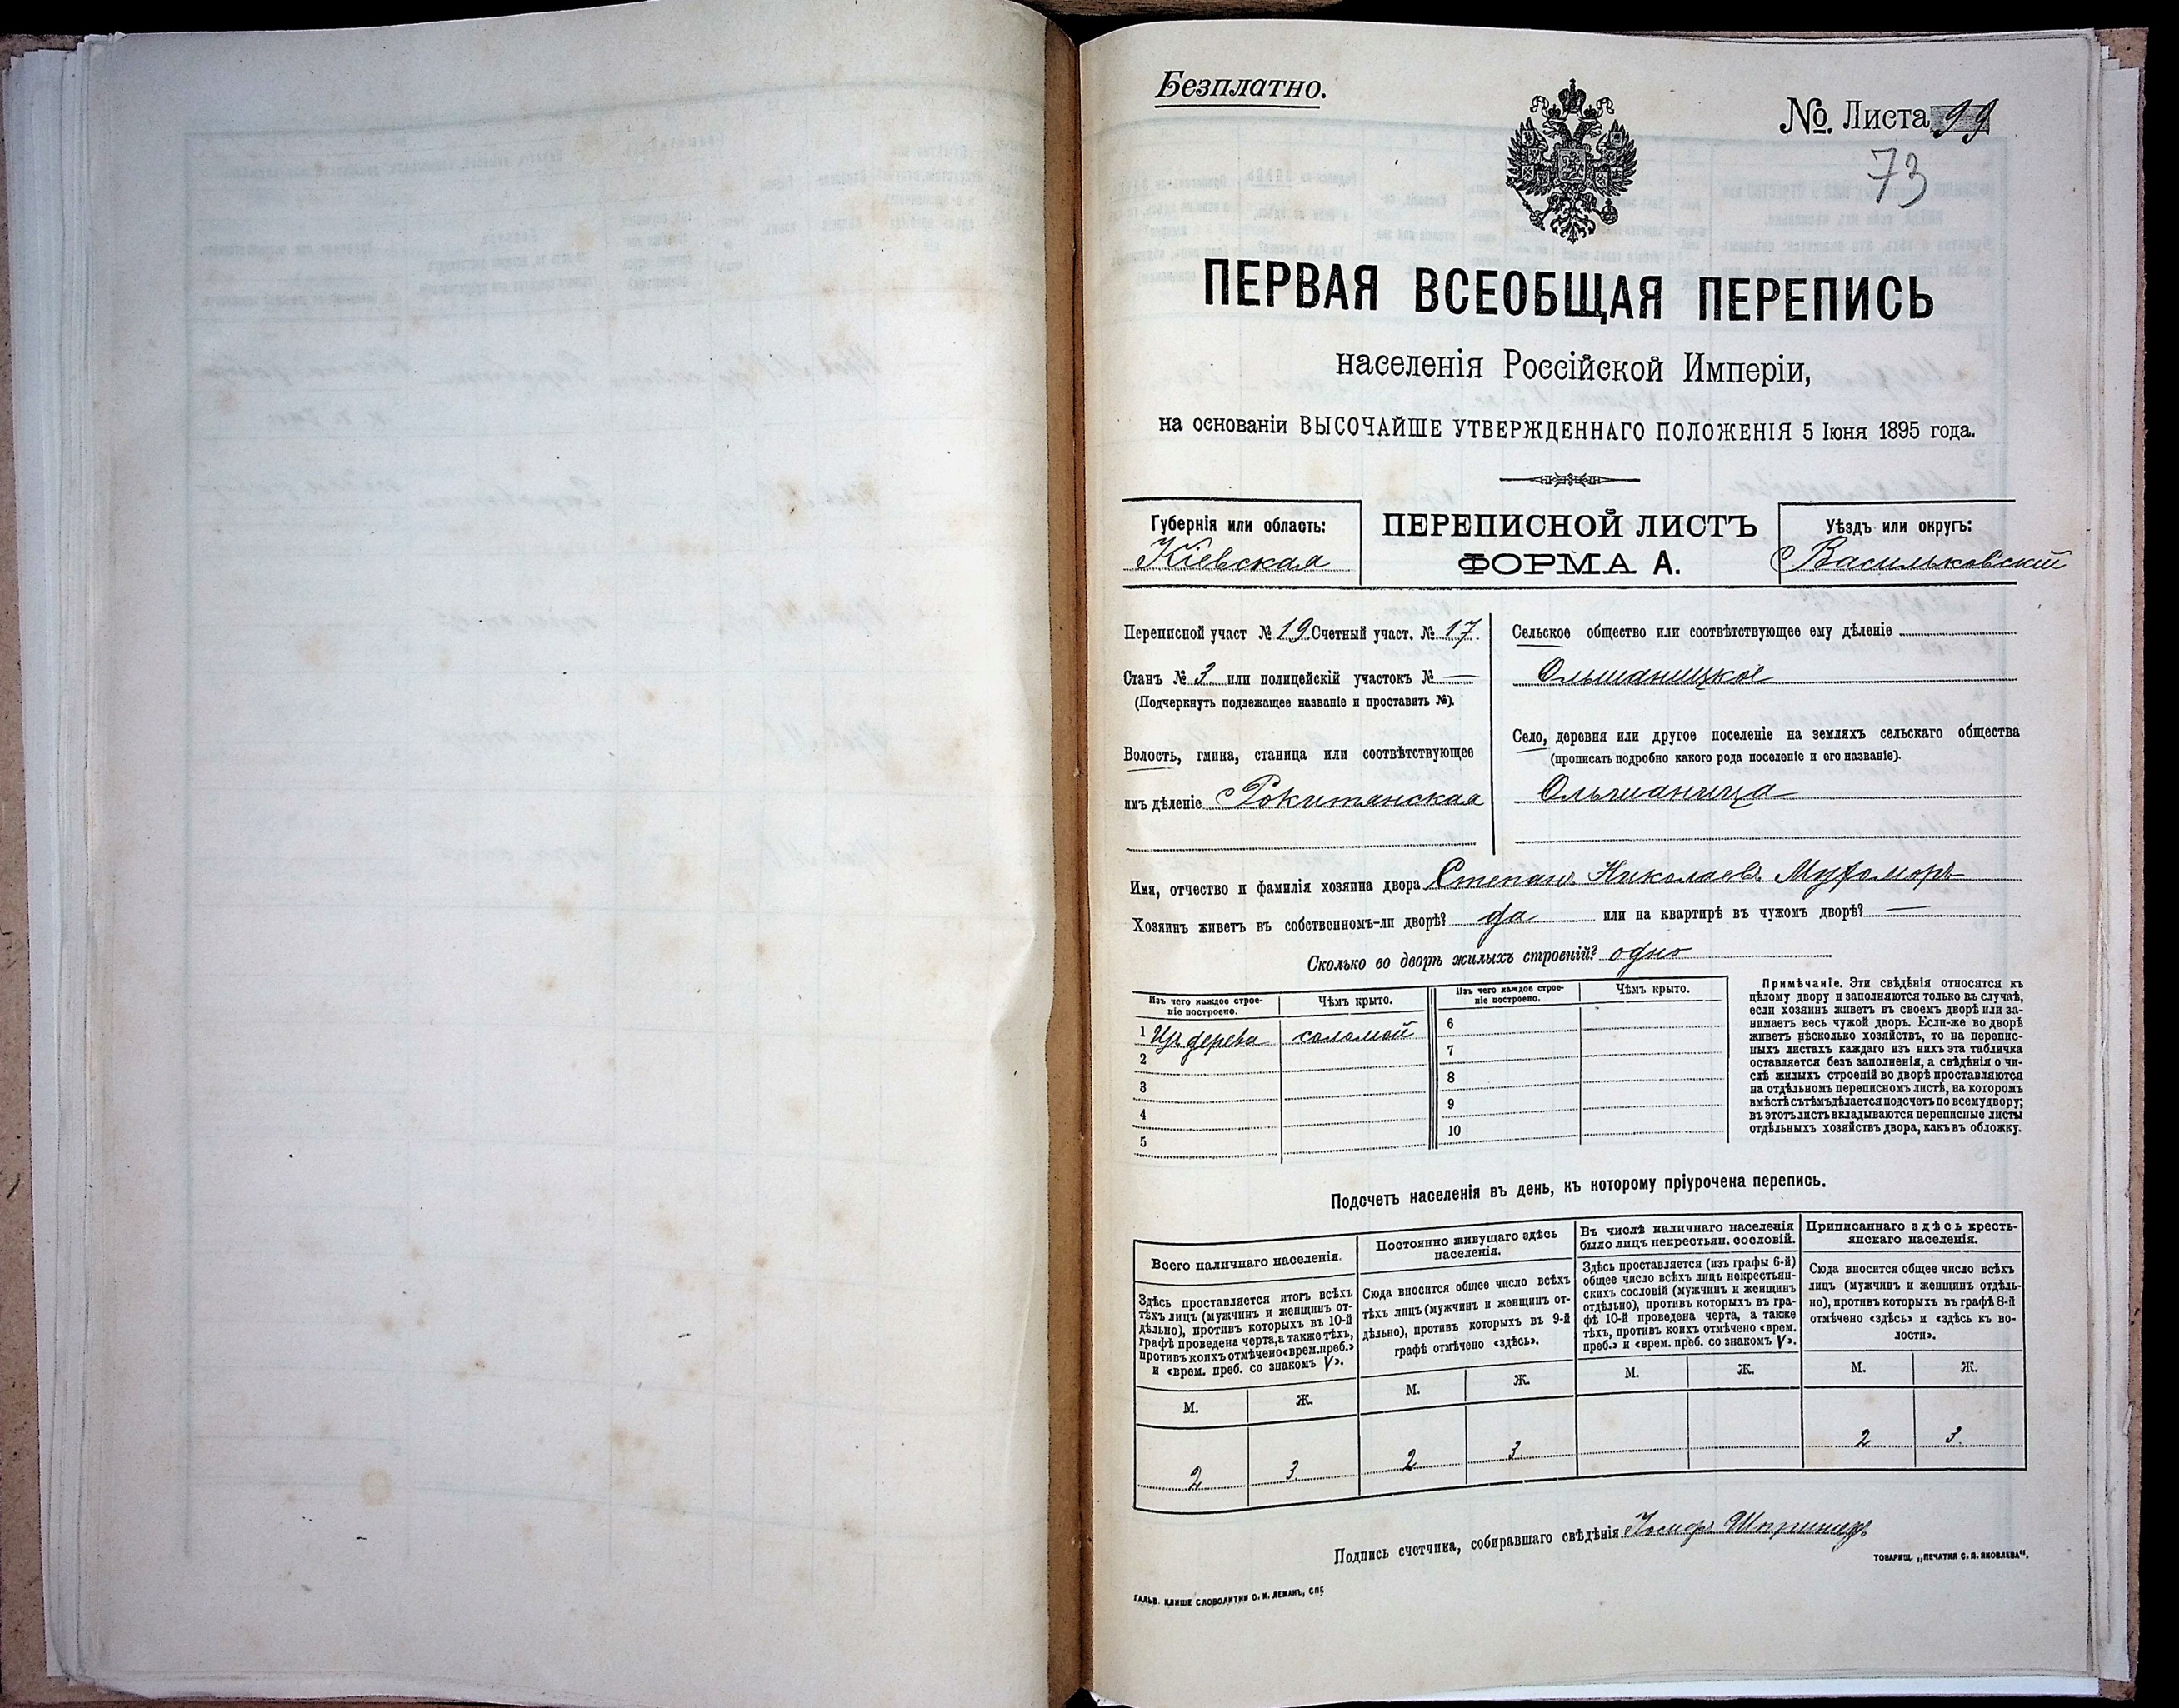 Безплатно.
№ Листа 99
73
ПЕРВАЯ ВСЕОБЩАЯ ПЕРЕПИСЬ
населенія Россійской Имперіи,
на основаніи ВЫСОЧАЙШЕ УТВЕРЖДЕННАГО ПОЛОЖЕНІЯ 5 Іюня 1895 года.
Губернія или область:
Кіевская
ПЕРЕПИСНОЙ ЛИСТЪ
ФОРМА А.
Уѣздъ или округъ:
Васильковскій
Переписной участ № 19 Счетный участ. № 17.
Станъ № 3 или полицейскій участокъ № —
(Подчеркнуть подлежащее названіе и проставить №).
Волость, гмина, станица или соотвѣтствующее
имъ дѣленіе Рокитанская
Сельское общество или соотвѣтствующее ему дѣленіе
Ольшаницкое
Село, деревня или другое поселеніе на земляхъ сельскаго общества
(прописать подробно какого рода поселеніе и его названіе).
Ольшаница
Имя, отчество и фамилія хозяина двора Степан. Николаев. Мухоморъ
Хозяинъ живетъ въ собственномъ-ли дворѣ? да или на квартирѣ въ чужомъ дворѣ? —
Сколько во дворѣ жилыхъ строеній? одно
Изъ чего каждое строе-
ніе построено.
Чѣмъ крыто.
Изъ чего каждое строе-
ніе построено.
Чѣмъ крыто.
1 Из дерева соломой
2
3
4
5
6
7
8
9
10
Примѣчаніе. Эти свѣдѣнія относятся къ
цѣлому двору и заполняются только въ случаѣ,
если хозяинъ живетъ въ своемъ дворѣ или за-
нимаетъ весь чужой дворъ. Если-же во дворѣ
живетъ нѣсколько хозяйствъ, то на перепис-
ныхъ листахъ каждаго изъ нихъ эта табличка
оставляется безъ заполненія, а свѣдѣнія о чи-
слѣ жилыхъ строеній во дворѣ проставляются
на отдѣльномъ переписномъ листѣ, на которомъ
вмѣстѣ съ тѣмъ дѣлается подсчетъ по всему двору;
въ этотъ листъ вкладываются переписные листы
отдѣльныхъ хозяйствъ двора, какъ въ обложку.
Подсчетъ населенія въ день, къ которому пріурочена перепись.
Всего наличнаго населенія.
Здѣсь проставляется итогъ всѣхъ
тѣхъ лицъ (мужчинъ и женщинъ от-
дѣльно), противъ которыхъ въ 10-й
графѣ проведена черта, а также тѣхъ,
противъ коихъ отмѣчено «врем. преб.»
и «врем. преб. со знакомъ V».
М. Ж.
2 3
Постоянно живущаго здѣсь
населенія.
Сюда вносится общее число всѣхъ
тѣхъ лицъ (мужчинъ и женщинъ от-
дѣльно), противъ которыхъ въ 9-й
графѣ отмѣчено «здѣсь».
М. Ж.
2 3.
Въ числѣ наличнаго населенія
было лицъ некрестьян. сословій.
Здѣсь проставляется (изъ графы 6-й)
общее число всѣхъ лицъ некрестьян-
скихъ сословій (мужчинъ и женщинъ
отдѣльно), противъ которыхъ въ гра-
фѣ 10-й проведена черта, а также
тѣхъ, противъ коихъ отмѣчено «врем.
преб.» и «врем. преб. со знакомъ V».
М. Ж.
Приписаннаго здѣсь кресть-
янскаго населенія.
Сюда вносится общее число всѣхъ
лицъ (мужчинъ и женщинъ отдѣль-
но), противъ которыхъ въ графѣ 8-й
отмѣчено «здѣсь» и «здѣсь къ во-
лости».
М. Ж.
2 3.
Подпись счетчика, собиравшаго свѣдѣнія
ТОВАРИЩ. „ПЕЧАТНЯ С. П. ЯКОВЛЕВА“.
ГАЛЬВ. КЛИШЕ СЛОВОЛИТНИ О. И. ЛЕМАНЪ, СПБ